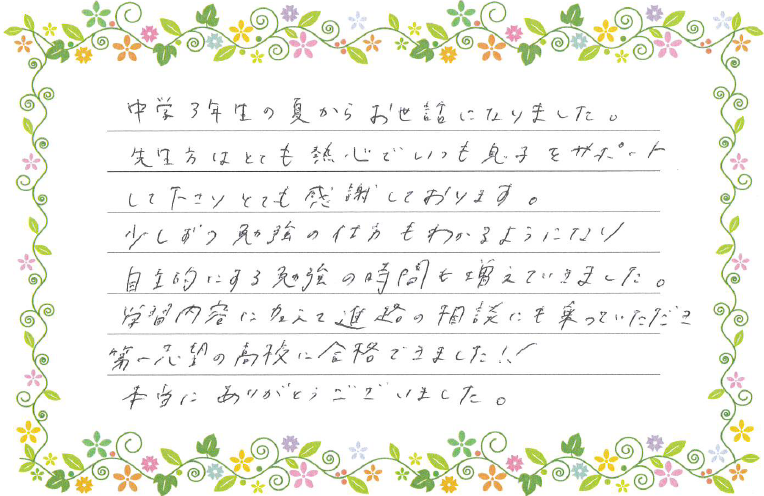 中学3年生の夏からお世話になりました。
先生方はとても熱心でいつも息子をサポート
して下さりとても感謝しております。
少しずつ勉強の仕方もわかるようになり
自主的にする勉強の時間も増えていきました。
学習内容に加えて進路の相談にも乗っていただき
第一志望の高校に合格できました!!
本当にありがとうございました。